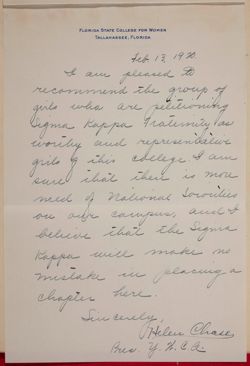 FLORIDA STATE COLLEGE FOR WOMEN
TALLAHASSEE, FLORIDA
Feb 13, 1920.
I am pleased to
recommend the group of
girls who are petitioning
Sigma Kappa Fraternity as
worthy and representative
girls of this college I am
sure that there is more
need of National Sororities
on our campus, and I
believe that the Sigma
Kappa will make no
mistake in placing a
chapter here.
Sincerely,
Helen Chase
Pres. Y.W.C.A.